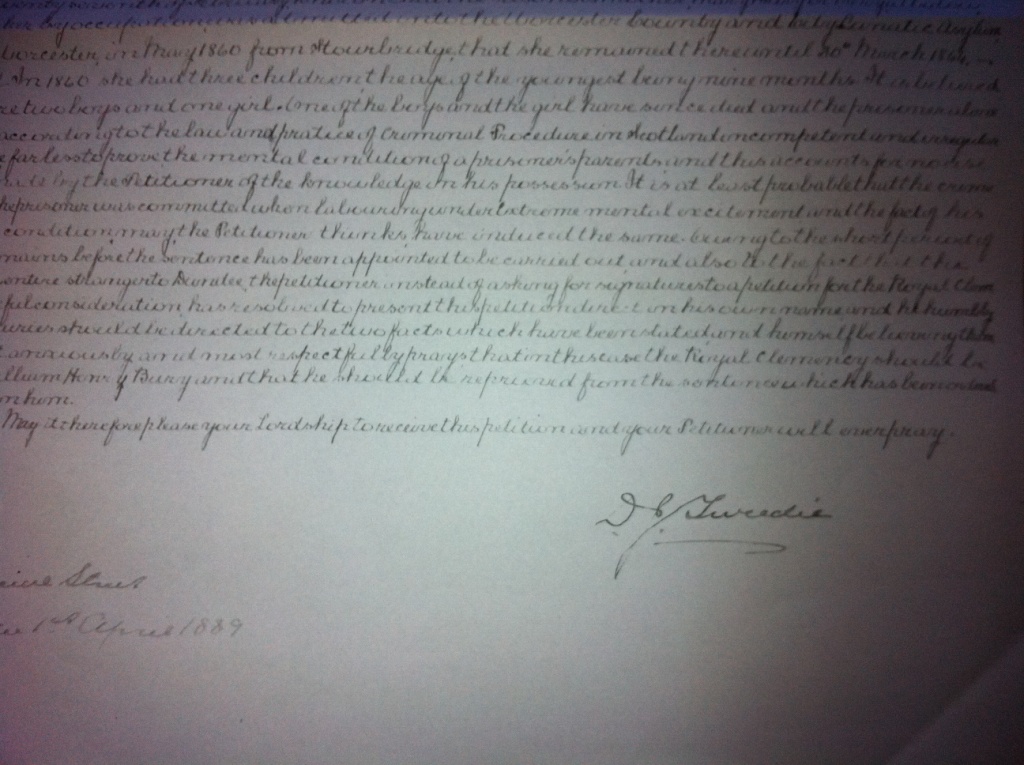 by occupation was admitted into the Worcester County and City Lunatic Asylum
Worcester, in May 1860 from Stourbridge, that she remained there until 30th March 1864.
In 1860 she had three children the age of the youngest being nine months. It is believed
two boys and one girl. One of the boys and the girl have since died and the prisoner alone
according to the law and practice of Criminal Procedure in Scotland incompetent and irregular
far less to prove the mental condition of a prisoner's parents and this accounts for no use
by the Petitioner of the knowledge in his possession. It is at least probable that the crime
prisoner was committed when labouring under extreme mental excitement and the fact of his
condition may, the Petitioner thinks, have induced the same. Owing to the short period of
before the sentence has been appointed to be carried out and also to the fact that the
entire stranger to Dundee, the petitioner instead of asking for signatures to a petition for the Royal Clem
consideration, has resolved to present this petition direct in his own name and he humbly
should be directed to the two facts which have been stated, and himself believing them
anxiously and most respectfully prays that in this case the Royal Clemency should be
William Henry Bury and that he should be reprieved from the sentence which has been
on him.
May it therefore please your Lordship to receive this petition and your Petitioner will ever pray.
D. Tweedie
Street
1st April 1889